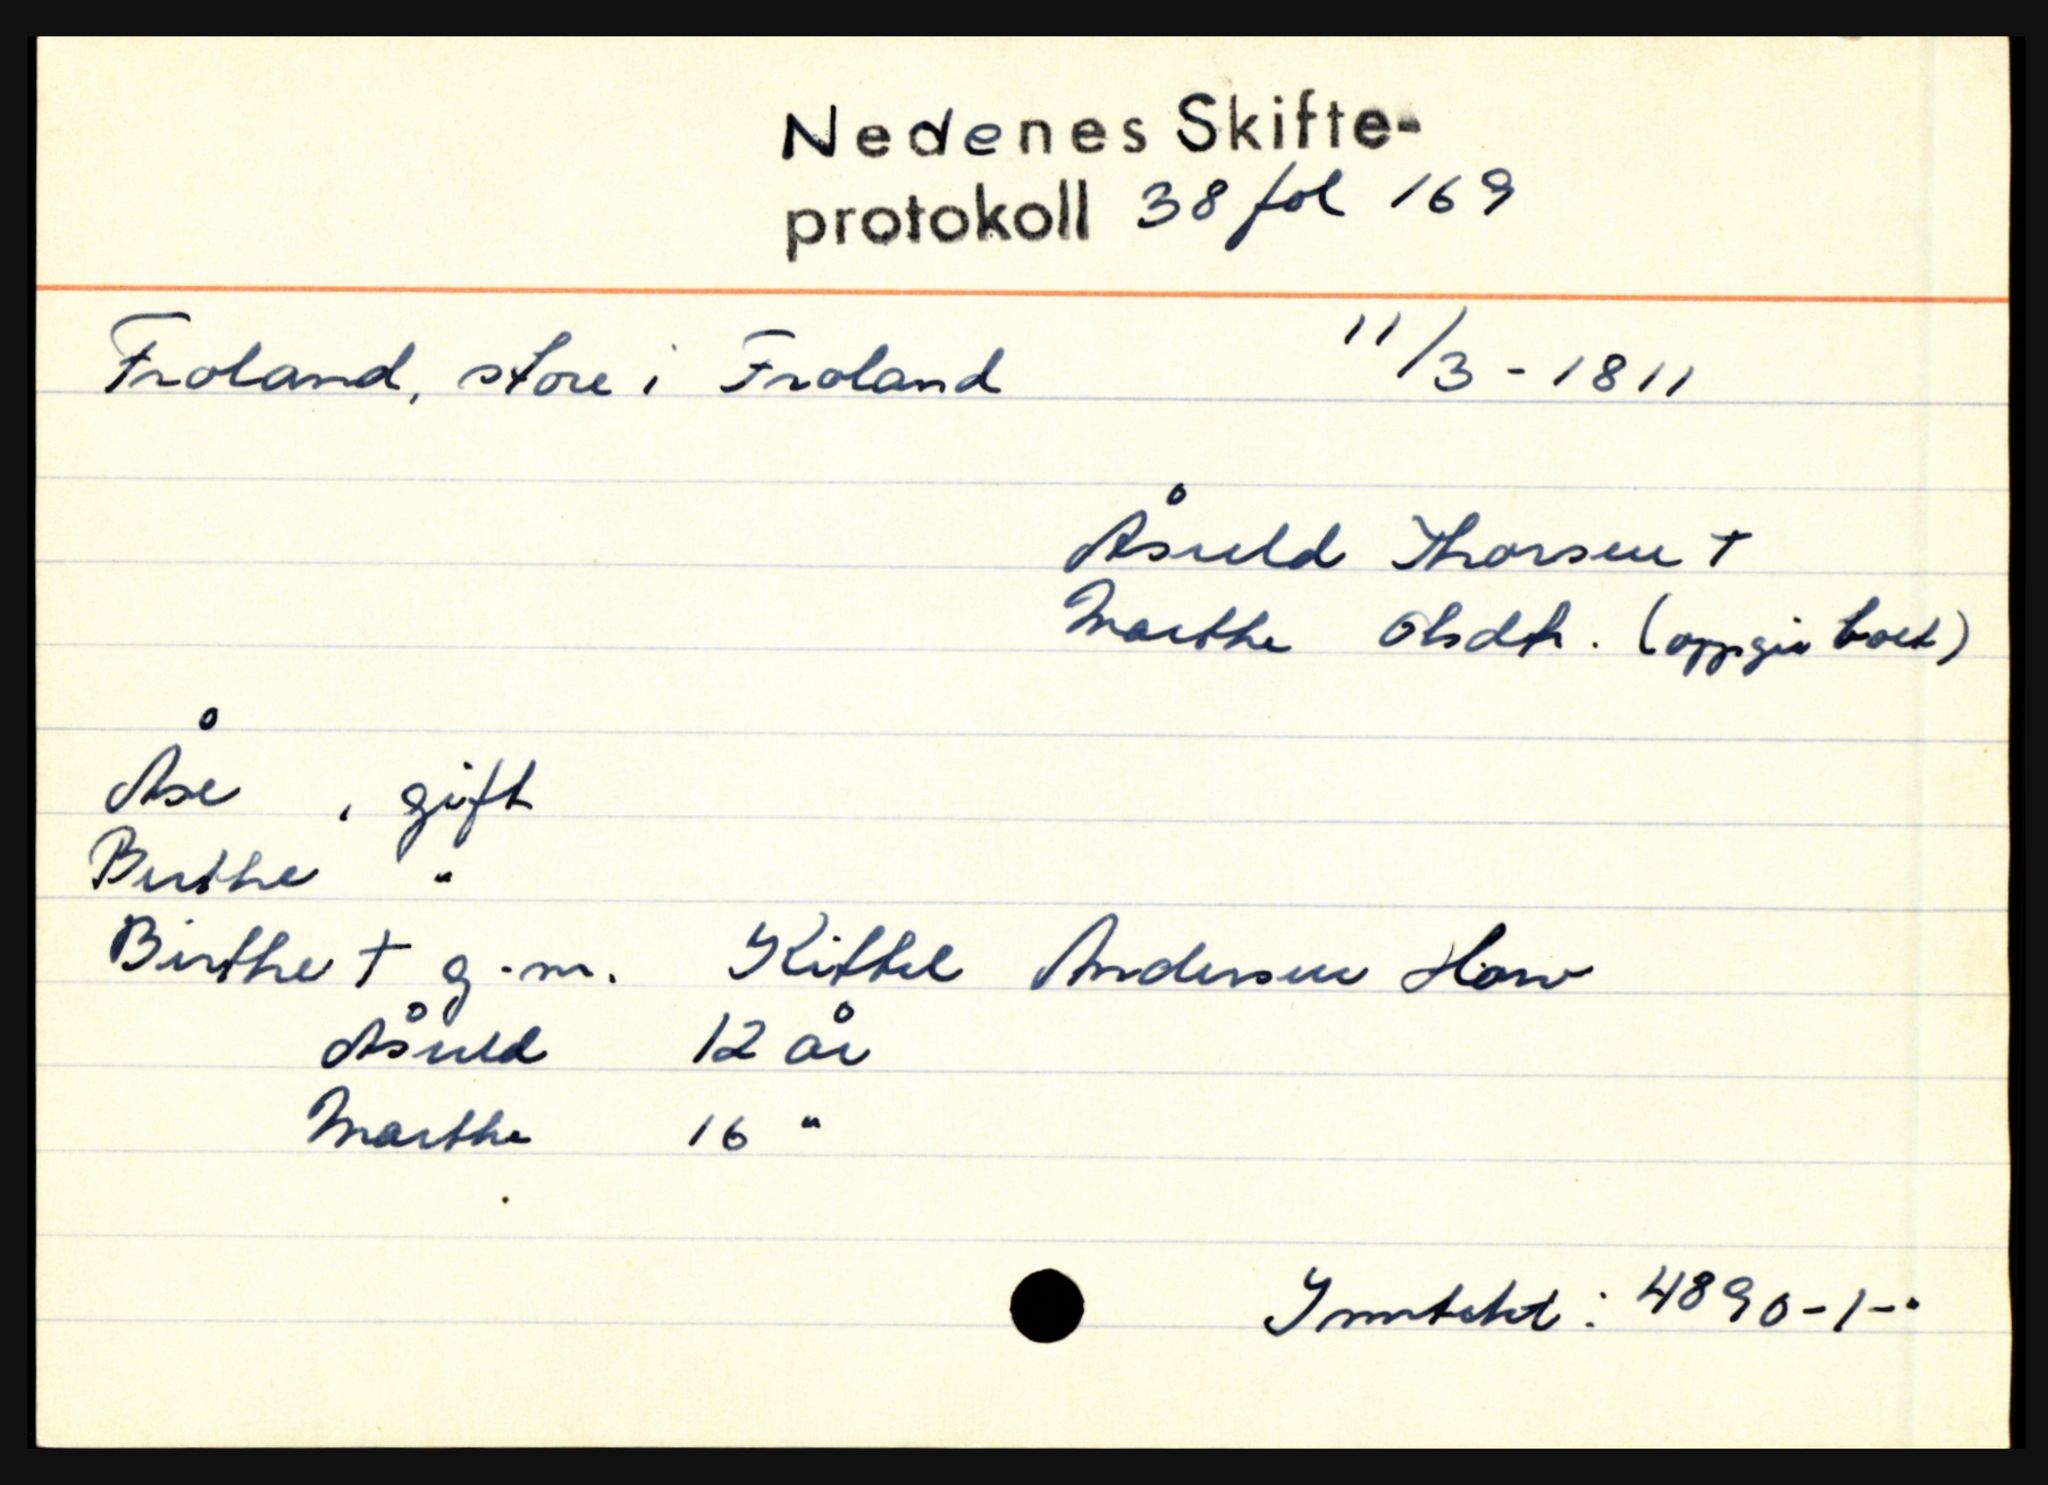 Nedenes Skifte-
protokoll 38 fol 169
Froland, store i Froland 11/3-1811
Åsuld Thorsen †
Marthe Olsdtr. (oppgir boet)
Åse , gift
Berthe "
Birthe † g.m. Kittel Andersen Haw
Åsuld 12 år
Marthe 16 "
Inntekt: 4890-1-"